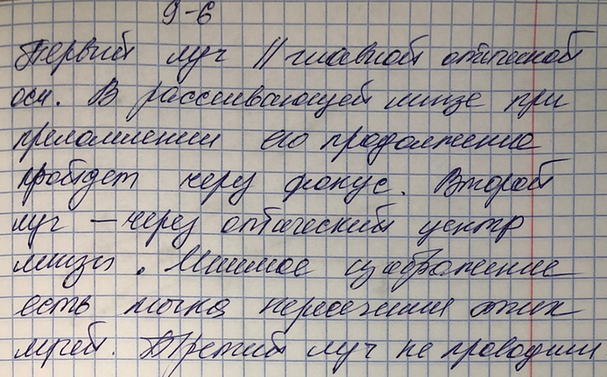 9-6
Первый луч || главной оптической
оси. В рассеивающей линзе при
преломлении его продолжение
пройдет через фокус. Второй
луч — через оптический центр
линзы. Мнимое изображение
есть точка пересечения этих
лучей. Третий луч не проводим